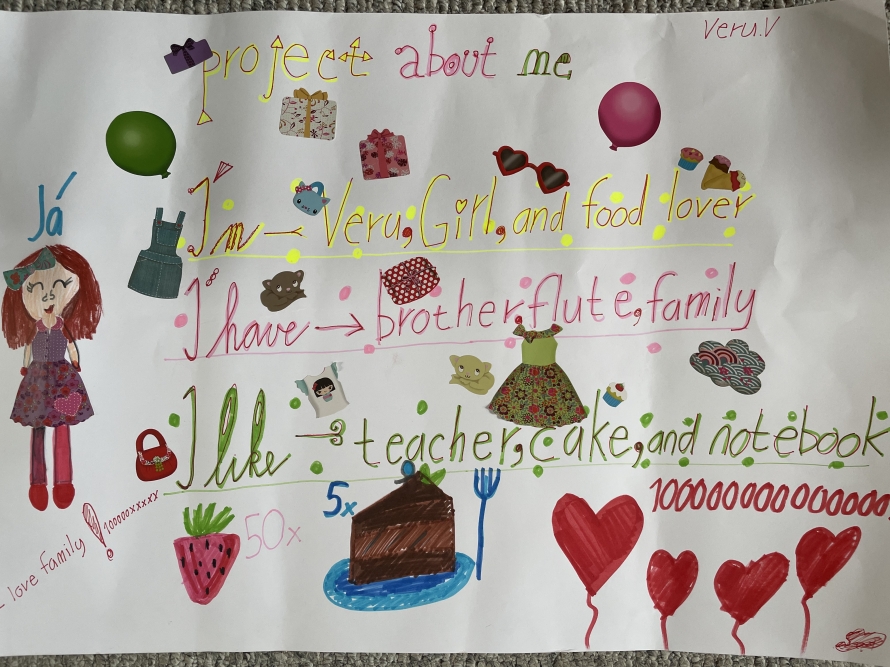 Veru.V
project about me
Já
I'm – Veru, Girl, and food lover
I have → brother flute, family
I like → teacher, cake, and notebook
love family! 100000xxxxx
50x
5x